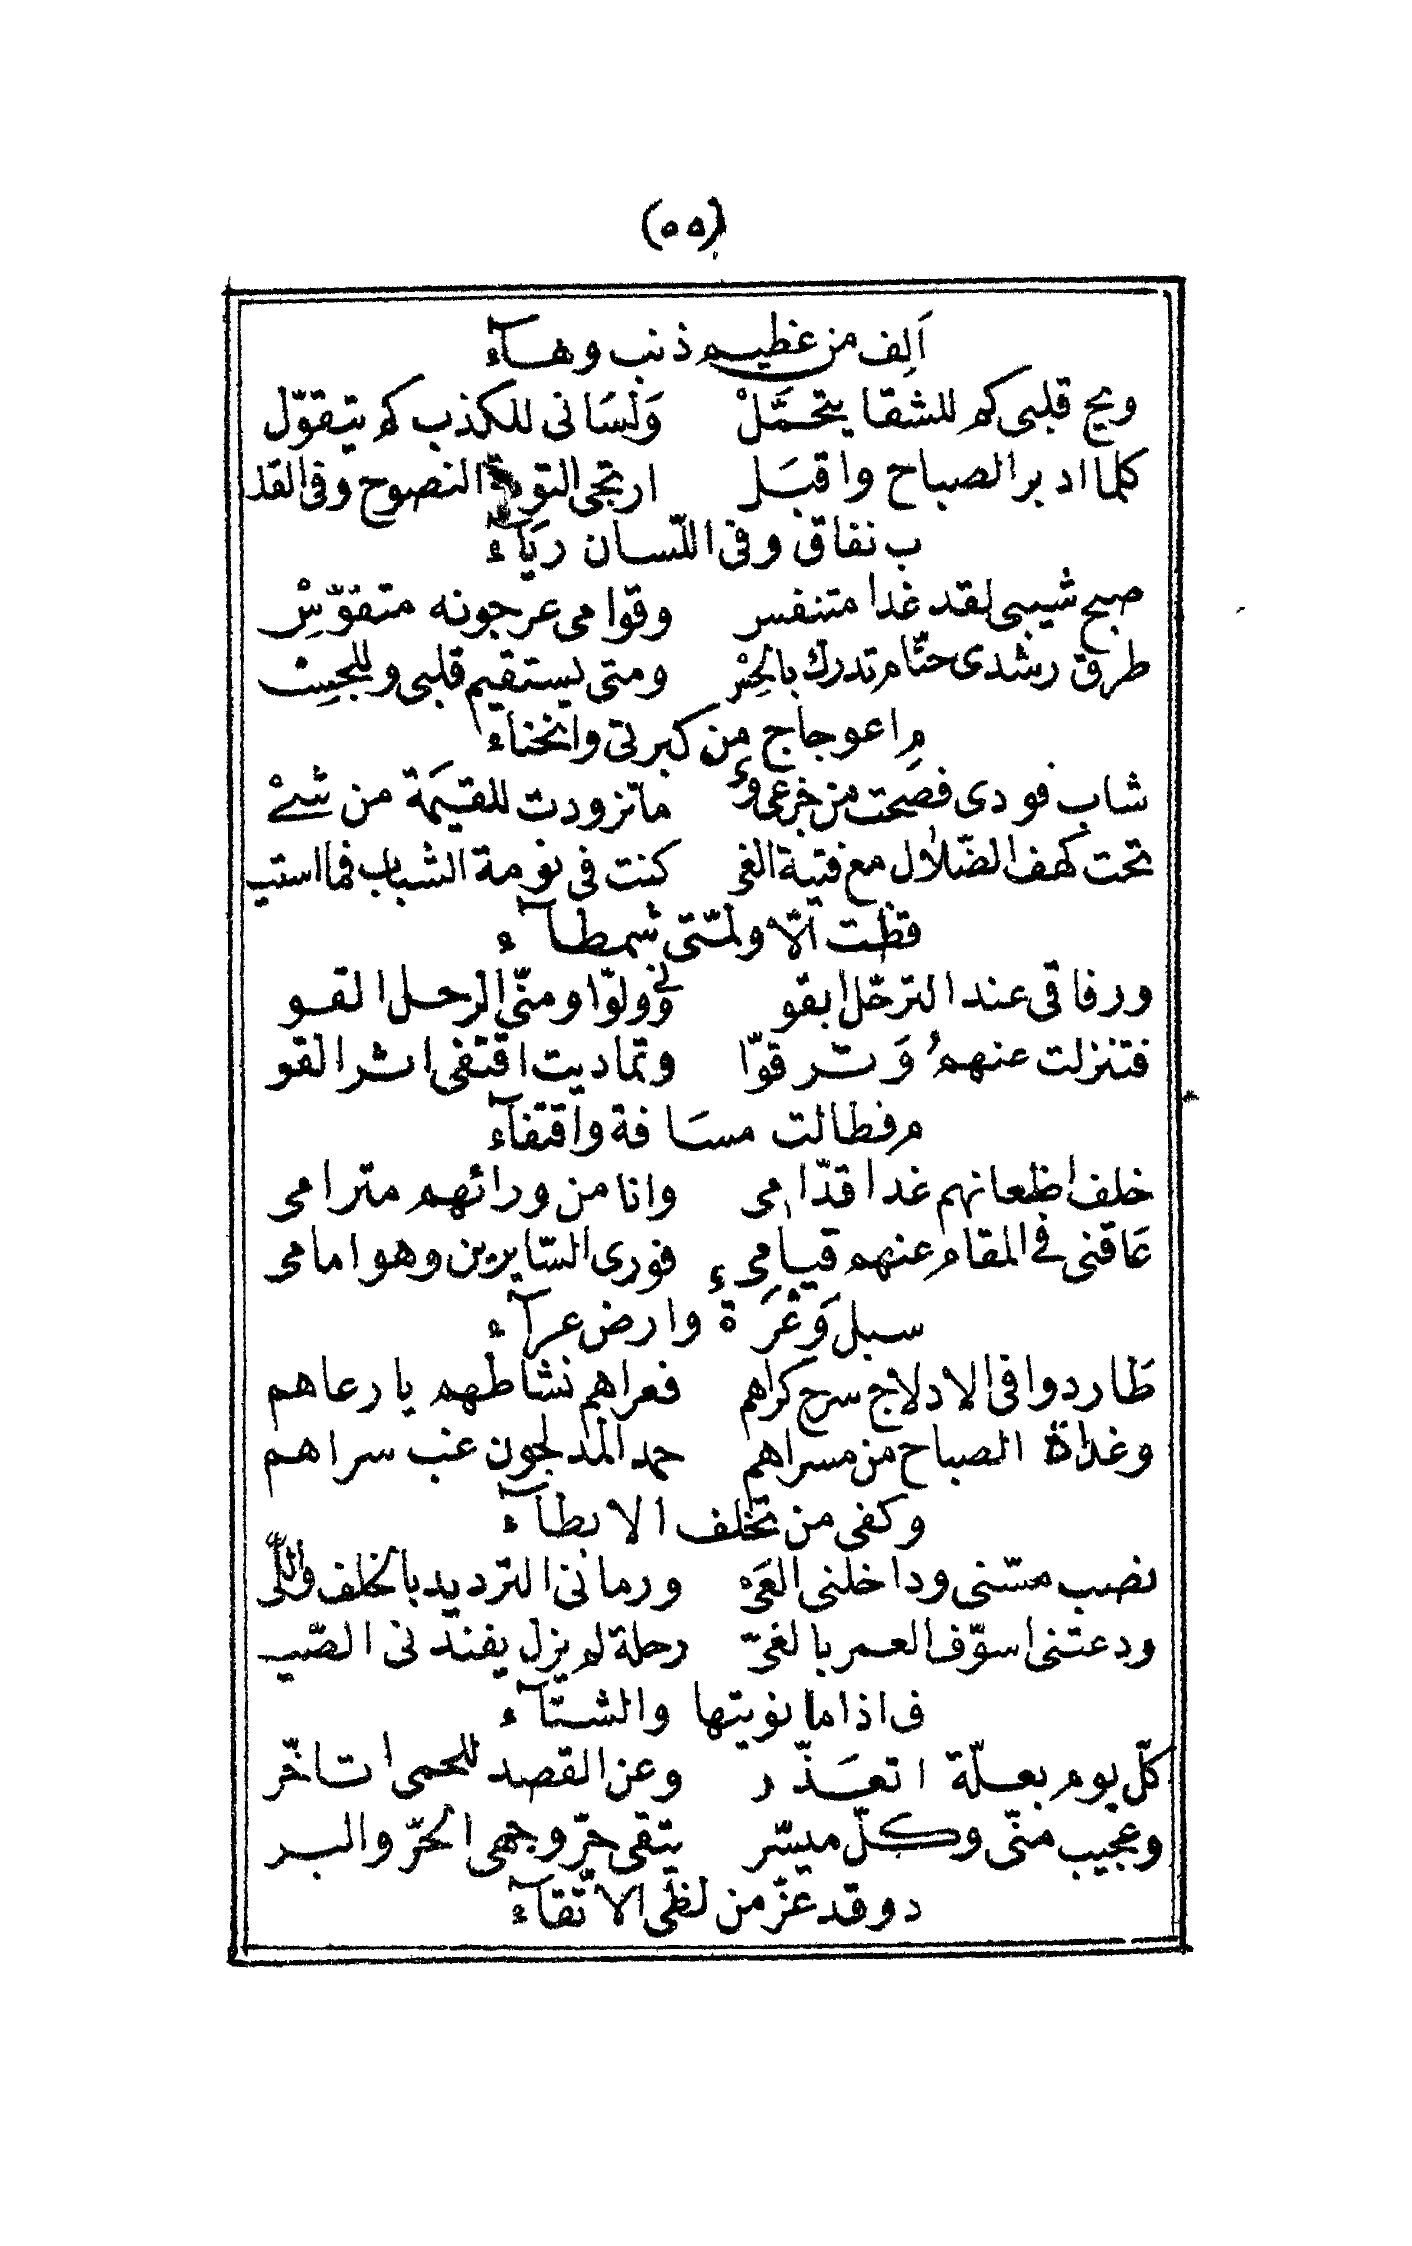 (٥٥)
اَلِف من عظيم ذنب وهآء
ويح قلبى كم للشقا يتحمَّلْ وَلسَانى للكذب كم يتقوّل
كلما ادبر الصباح واقبَل ارتجى التوبة النصوح وفى القلـ
ب نفاق وفى اللّسان ريَآء
صبح شيبى لقد غدا متنفس وقوامى عرجونه متقوّسْ
طرق رشدى حتّام تدرك بالحِسْ ومتى يستقيم قلبى وللجسـ
م اعوجاج من كبرتى وانحناء
شاب فودى فصحت من جزعى وَىْ ما تزودت للقيمَة من شىْ
تحت كهف الضّلال مع فتية الغى كنت فى نومة الشباب فما استيـ
قظت الّا ولمّتى شمطآء
ورفاقى عند الترحّل ابقونى وولّوا ومنّى الرحل القو
فتنزلت عنهمُ وَترقوّا وتماديت اقتفى اثر القو
م فطالت مسَافة واقتفآء
خلف اظعانهم غدا قدّامى وانا من ورائهم مترامى
عَاقنى فى المقام عنهم قيامى فورى السّايرين وهو امامى
سبل وَعْرَة وارض عرآء
طَاردوا فى الادلاج سرح كراهم فعراهم نشاطهم يا رعاهم
وغداة الصباح من مسراهم حمد المدلجون غب سراهم
وكفى من تخلف الابطآء
نصب مسّنى وداخلنى العَىْ ورمانى الترديد بالخلف واللّى
ودعتنى اسوّف العمر بالغىّ رحلة لم يزل يفندنى الصّيـ
ف اذا ما نويتها والشتآء
كلّ يوم بعلّة اتعَذّر وعن القصد للحمى اتاخّر
وعجيب منّى وكلّ ميسّر يتقى حرّ وجهى الحرّ والبر
د وقد عزّ من لظى الاتّقآء